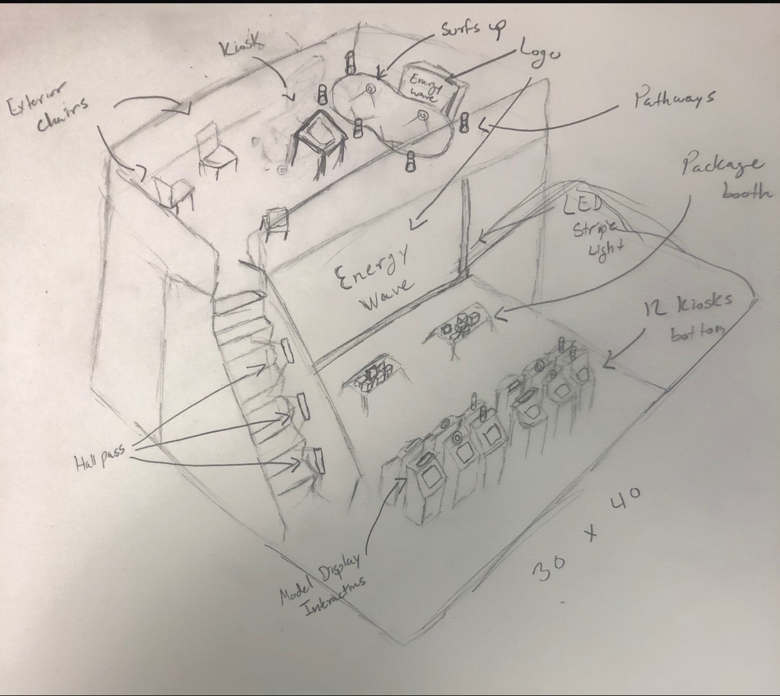 Surfs up
Logo
Kiosk
Energy
wave
Exterior
Chairs
Pathways
Package
booth
LED
Stripe
Light
Energy
Wave
12 Kiosks
bottom
Hall pass
Model Display
30 x 40